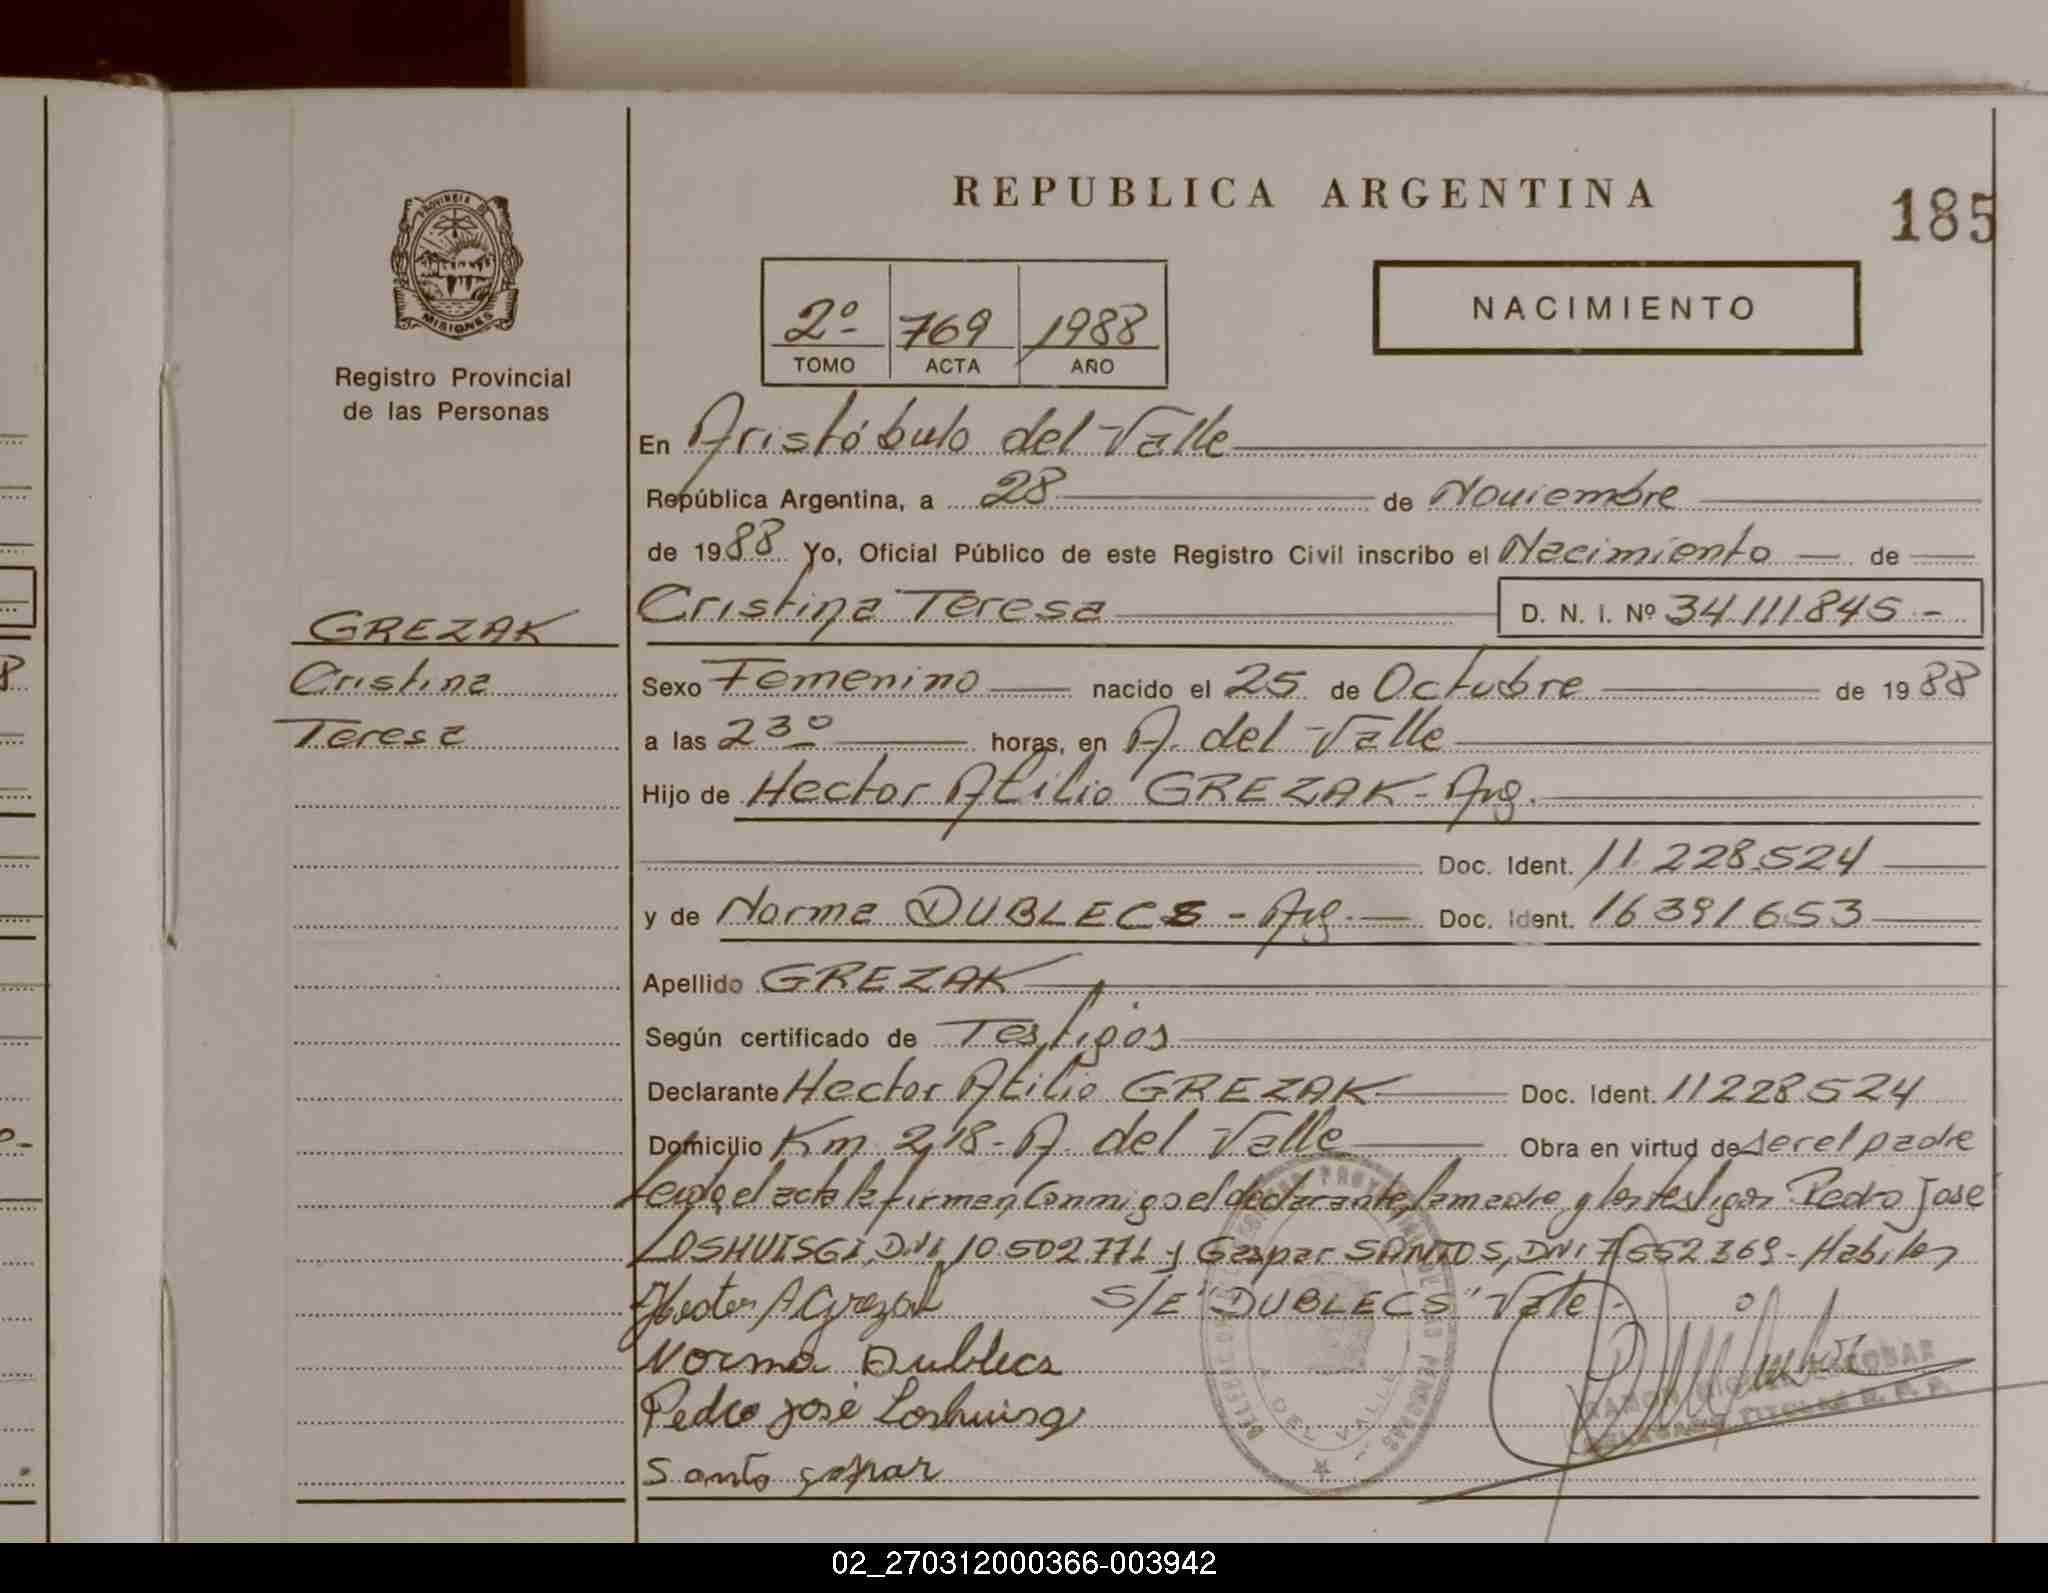 REPUBLICA ARGENTINA
185
PROVINCIA DE
MISIONES
Registro Provincial
de las Personas
2º 769 1988
TOMO ACTA AÑO
NACIMIENTO
En Aristóbulo del Valle
República Argentina, a 28 de Noviembre
de 1988 Yo, Oficial Público de este Registro Civil inscribo el Nacimiento de
Cristina Teresa D. N. I. Nº 34.111.845.-
GREZAK
Cristina
Teresa
Sexo Femenino nacido el 25 de Octubre de 1988
a las 23º horas, en A. del Valle
Hijo de Hector Atilio GREZAK - Arg.
Doc. Ident. 11.228.524
y de Norma DUBLECS - Arg. Doc. Ident. 16.391.653
Apellido GREZAK
Según certificado de Testigos
Declarante Hector Atilio GREZAK Doc. Ident. 11228524
Domicilio Km 218 - A. del Valle Obra en virtud de ser el padre
Leida el acta la firman conmigo el declarante, la madre y los testigos Pedro José
LOSHUISGI, DNI 10.502.771 y Gaspar SANTOS, DNI 7.552.369 - Habiles
Hector A Grezak S/E "DUBLECS" Vale.
Norma Dublecs
Pedro José Loshuisg
Santo gaspar
A. DEL VALLE
RAMON ESCOBAR
DELEGADO TITULAR R. P. P.
02_270312000366-003942